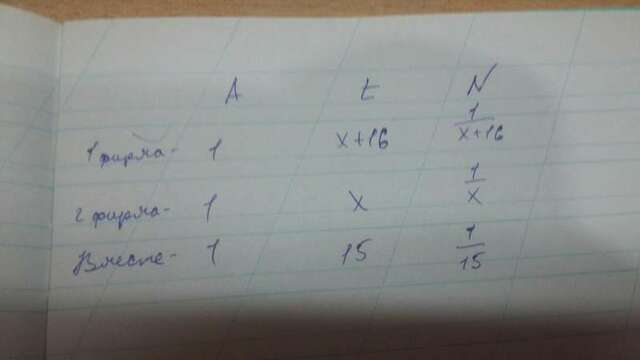 A t N
1 фирма- 1 x+16 1/(x+16)
2 фирма- 1 x 1/x
Вместе- 1 15 1/15